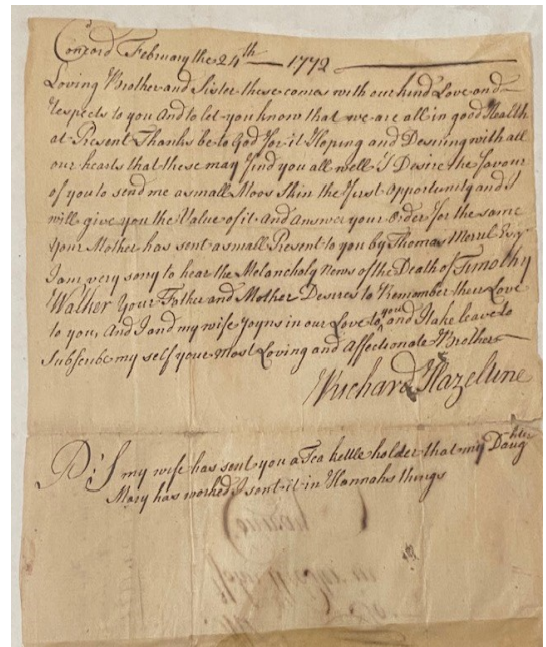 Concord February the 24th 1772
Loving Brother and Sister these comes with our kind Love and
respects to you And to let you know that we are all in good Health
at Present Thanks be to God for it Hoping and Desiring with all
our hearts that these may find you all well I Desire the favour
of you to send me a small Moos Skin the first opportunity and I
will give you the Value of it And Answer your order for the same
your Mother has sent a small Present to you by Thomas Merril Esqr
I am very sorry to hear the Melancholy News of the Death of Timothy
Walker your Father and Mother Desires to Remember their Love
to you, And I and my wife Joyns in our Love to you and I take leave to
Subscribe my self your most Loving and affectionate Brother
Richard Hazeltine
P:S my wife has sent you a Tea kettle holder that my Daughter
Mary has worked I sent it in Hannahs things